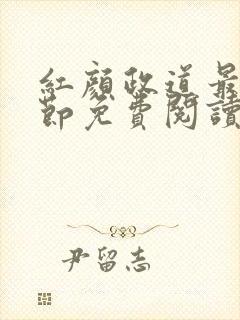 紅顏政道最
節免費閱讀
尹留志